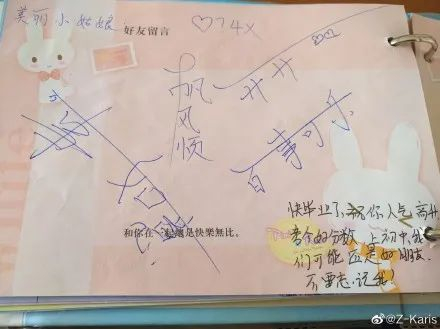 美丽小姑娘
好友留言
♡74x
帆
风
顺
百事可乐
和你在一起總是快樂無比。
快毕业了,祝你人气高升
考个好分数,上初中,我
们可能还是好朋友.
不要忘记我!
@Z-Karis